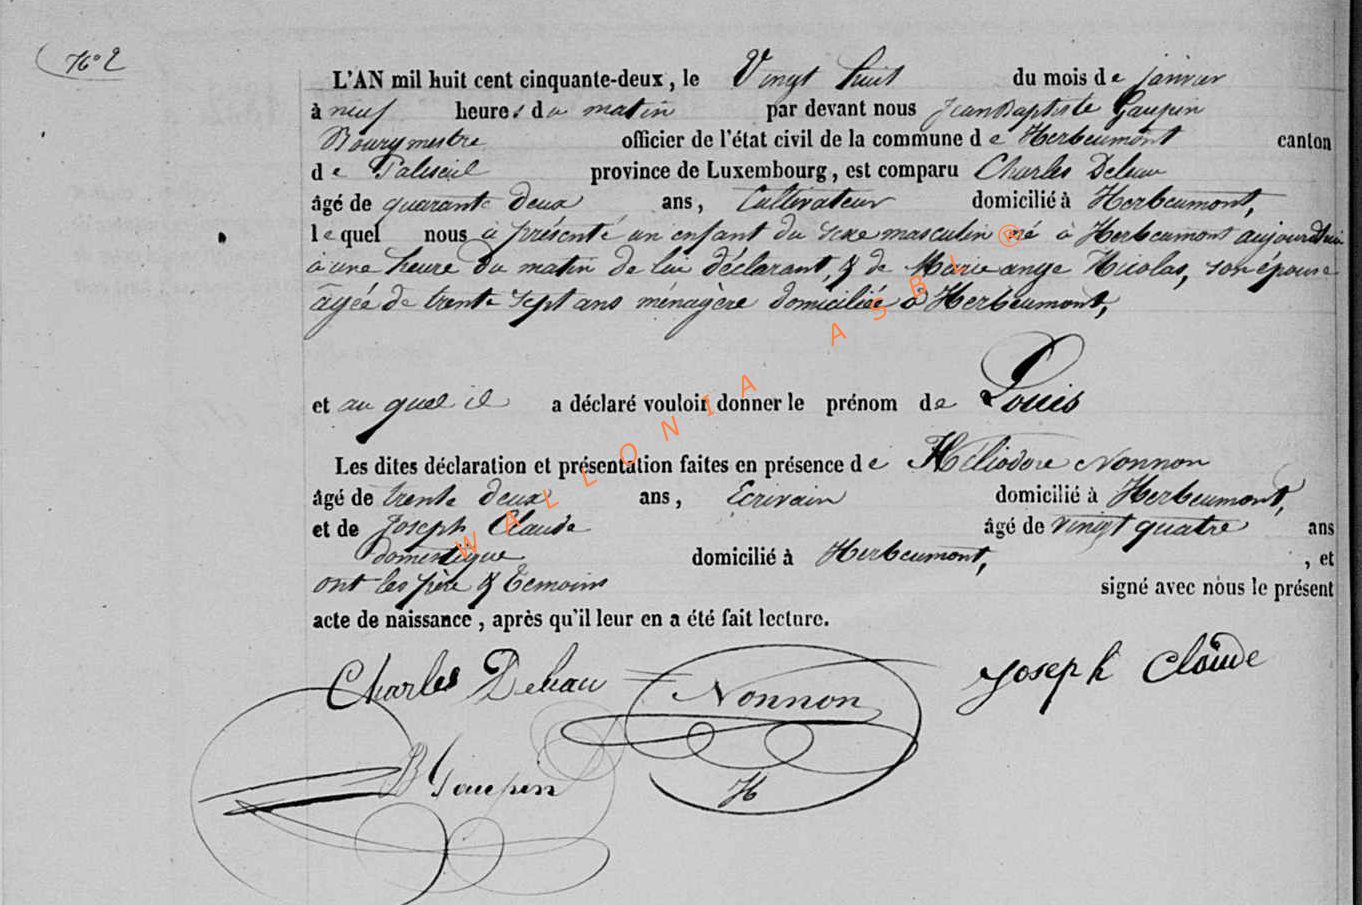 N° 2
L'AN mil huit cent cinquante-deux, le Vingt huit du mois de janvier
à neuf heures du matin par devant nous Jean Baptiste Gaupin
Bourgmestre officier de l'état civil de la commune de Herbeumont canton
de Paliseul province de Luxembourg, est comparu Charles Deleau
âgé de quarante deux ans, Cultivateur domicilié à Herbeumont,
lequel nous a présenté un enfant du sexe masculin né à Herbeumont aujourd'hui
à une heure du matin de lui déclarant, & de Marie ange Nicolas, son épouse
âgée de trente sept ans ménagère domiciliée à Herbeumont,
et au quel il a déclaré vouloir donner le prénom de Louis
Les dites déclaration et présentation faites en présence de Héliodore Nonnon
âgé de trente deux ans, Ecrivain domicilié à Herbeumont,
et de Joseph Claude âgé de vingt quatre ans
domestique domicilié à Herbeumont, , et
ont les père & Temoins signé avec nous le présent
acte de naissance, après qu'il leur en a été fait lecture.
Charles Deleau Nonnon Joseph Claude
B Gaupin H
WALLONIA ASBL ®